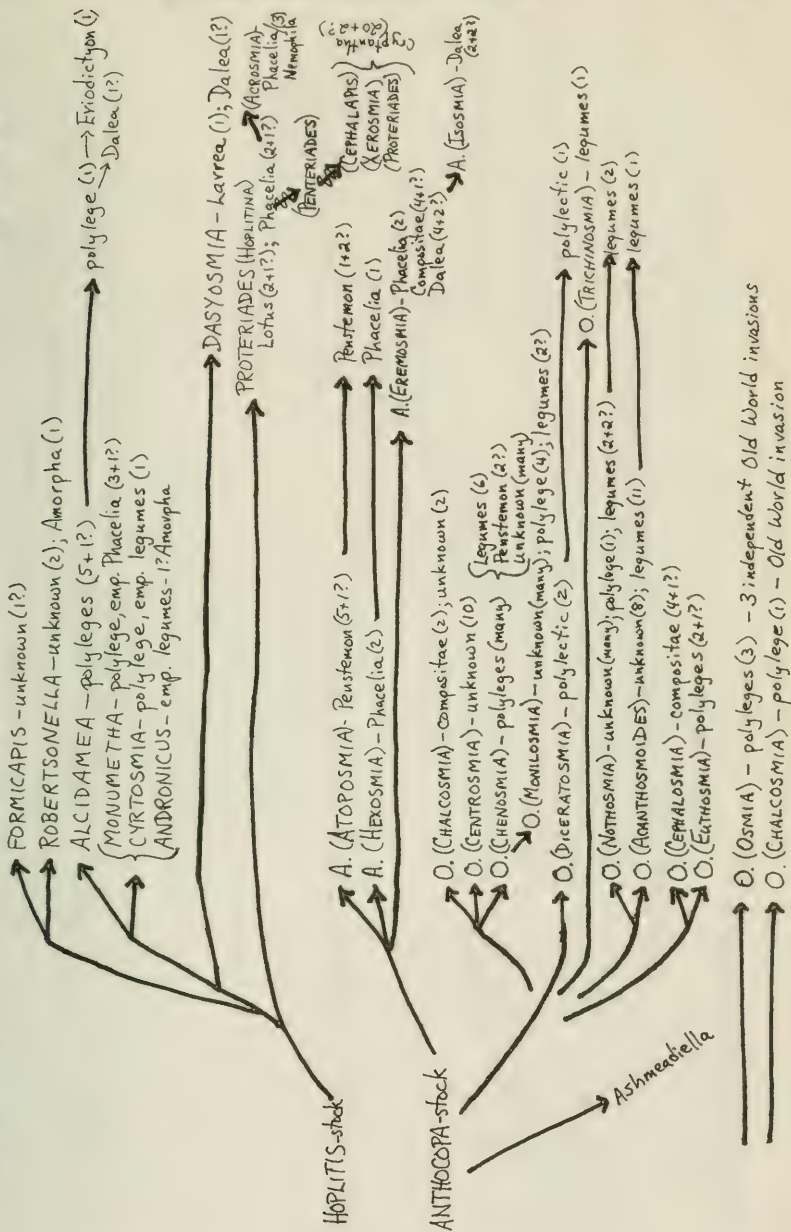 FORMICAPIS - unknown (1?)
ROBERTSONELLA - unknown (2); Amorpha (1)
ALCIDAMEA - polyleges (5+1?)
polylege (1) → Eriodictyon (1)
Dalea (1?)
MONUMETHA - polylege, emp. Phacelia (3+1?)
CYRTOSMIA - polylege, emp. legumes (1)
ANDRONICUS - emp. legumes - 1? Amorpha
DASYOSMIA - Larrea (1); Dalea (1?)
PROTERIADES (HOPLITINA)
Lotus (2+1?); Phacelia (2+1?)
(ACROSMIA) -
Phacelia (3)
Nemophila
(PENTERIADES)
(CEPHALAPIS)
(XEROSMIA)
(PROTERIADES)
Cryptantha
(20+2?)
HOPLITIS-stock
A. (ATOPOSMIA) - Penstemon (5+1?)
Penstemon (1+2?)
A. (HEXOSMIA) - Phacelia (2)
Phacelia (1)
A. (EREMOSMIA) - Phacelia (2)
Compositae (4+1?)
Dalea (4+2?)
A. (ISOSMIA) - Dalea
(2+2?)
O. (CHALCOSMIA) - compositae (2); unknown (2)
O. (CENTROSMIA) - unknown (10)
O. (CHENOSMIA) - polyleges (many)
Legumes (6)
Penstemon (2?)
unknown (many)
O. (MONILOSMIA) - unknown (many); polylege (4); legumes (2?)
O. (DICERATOSMIA) - polylectic (2)
polylectic (1)
O. (TRICHINOSMIA) - legumes (1)
O. (NOTHOSMIA) - unknown (many); polylege (1); legumes (2+2?)
legumes (2)
O. (ACANTHOSMOIDES) - unknown (8); legumes (11)
legumes (1)
O. (CEPHALOSMIA) - compositae (4+1?)
O. (EUTHOSMIA) - polyleges (2+1?)
ANTHOCOPA-stock
Ashmeadiella
O. (OSMIA) - polyleges (3) - 3 independent Old World invasions
O. (CHALCOSMIA) - polylege (1) - Old World invasion